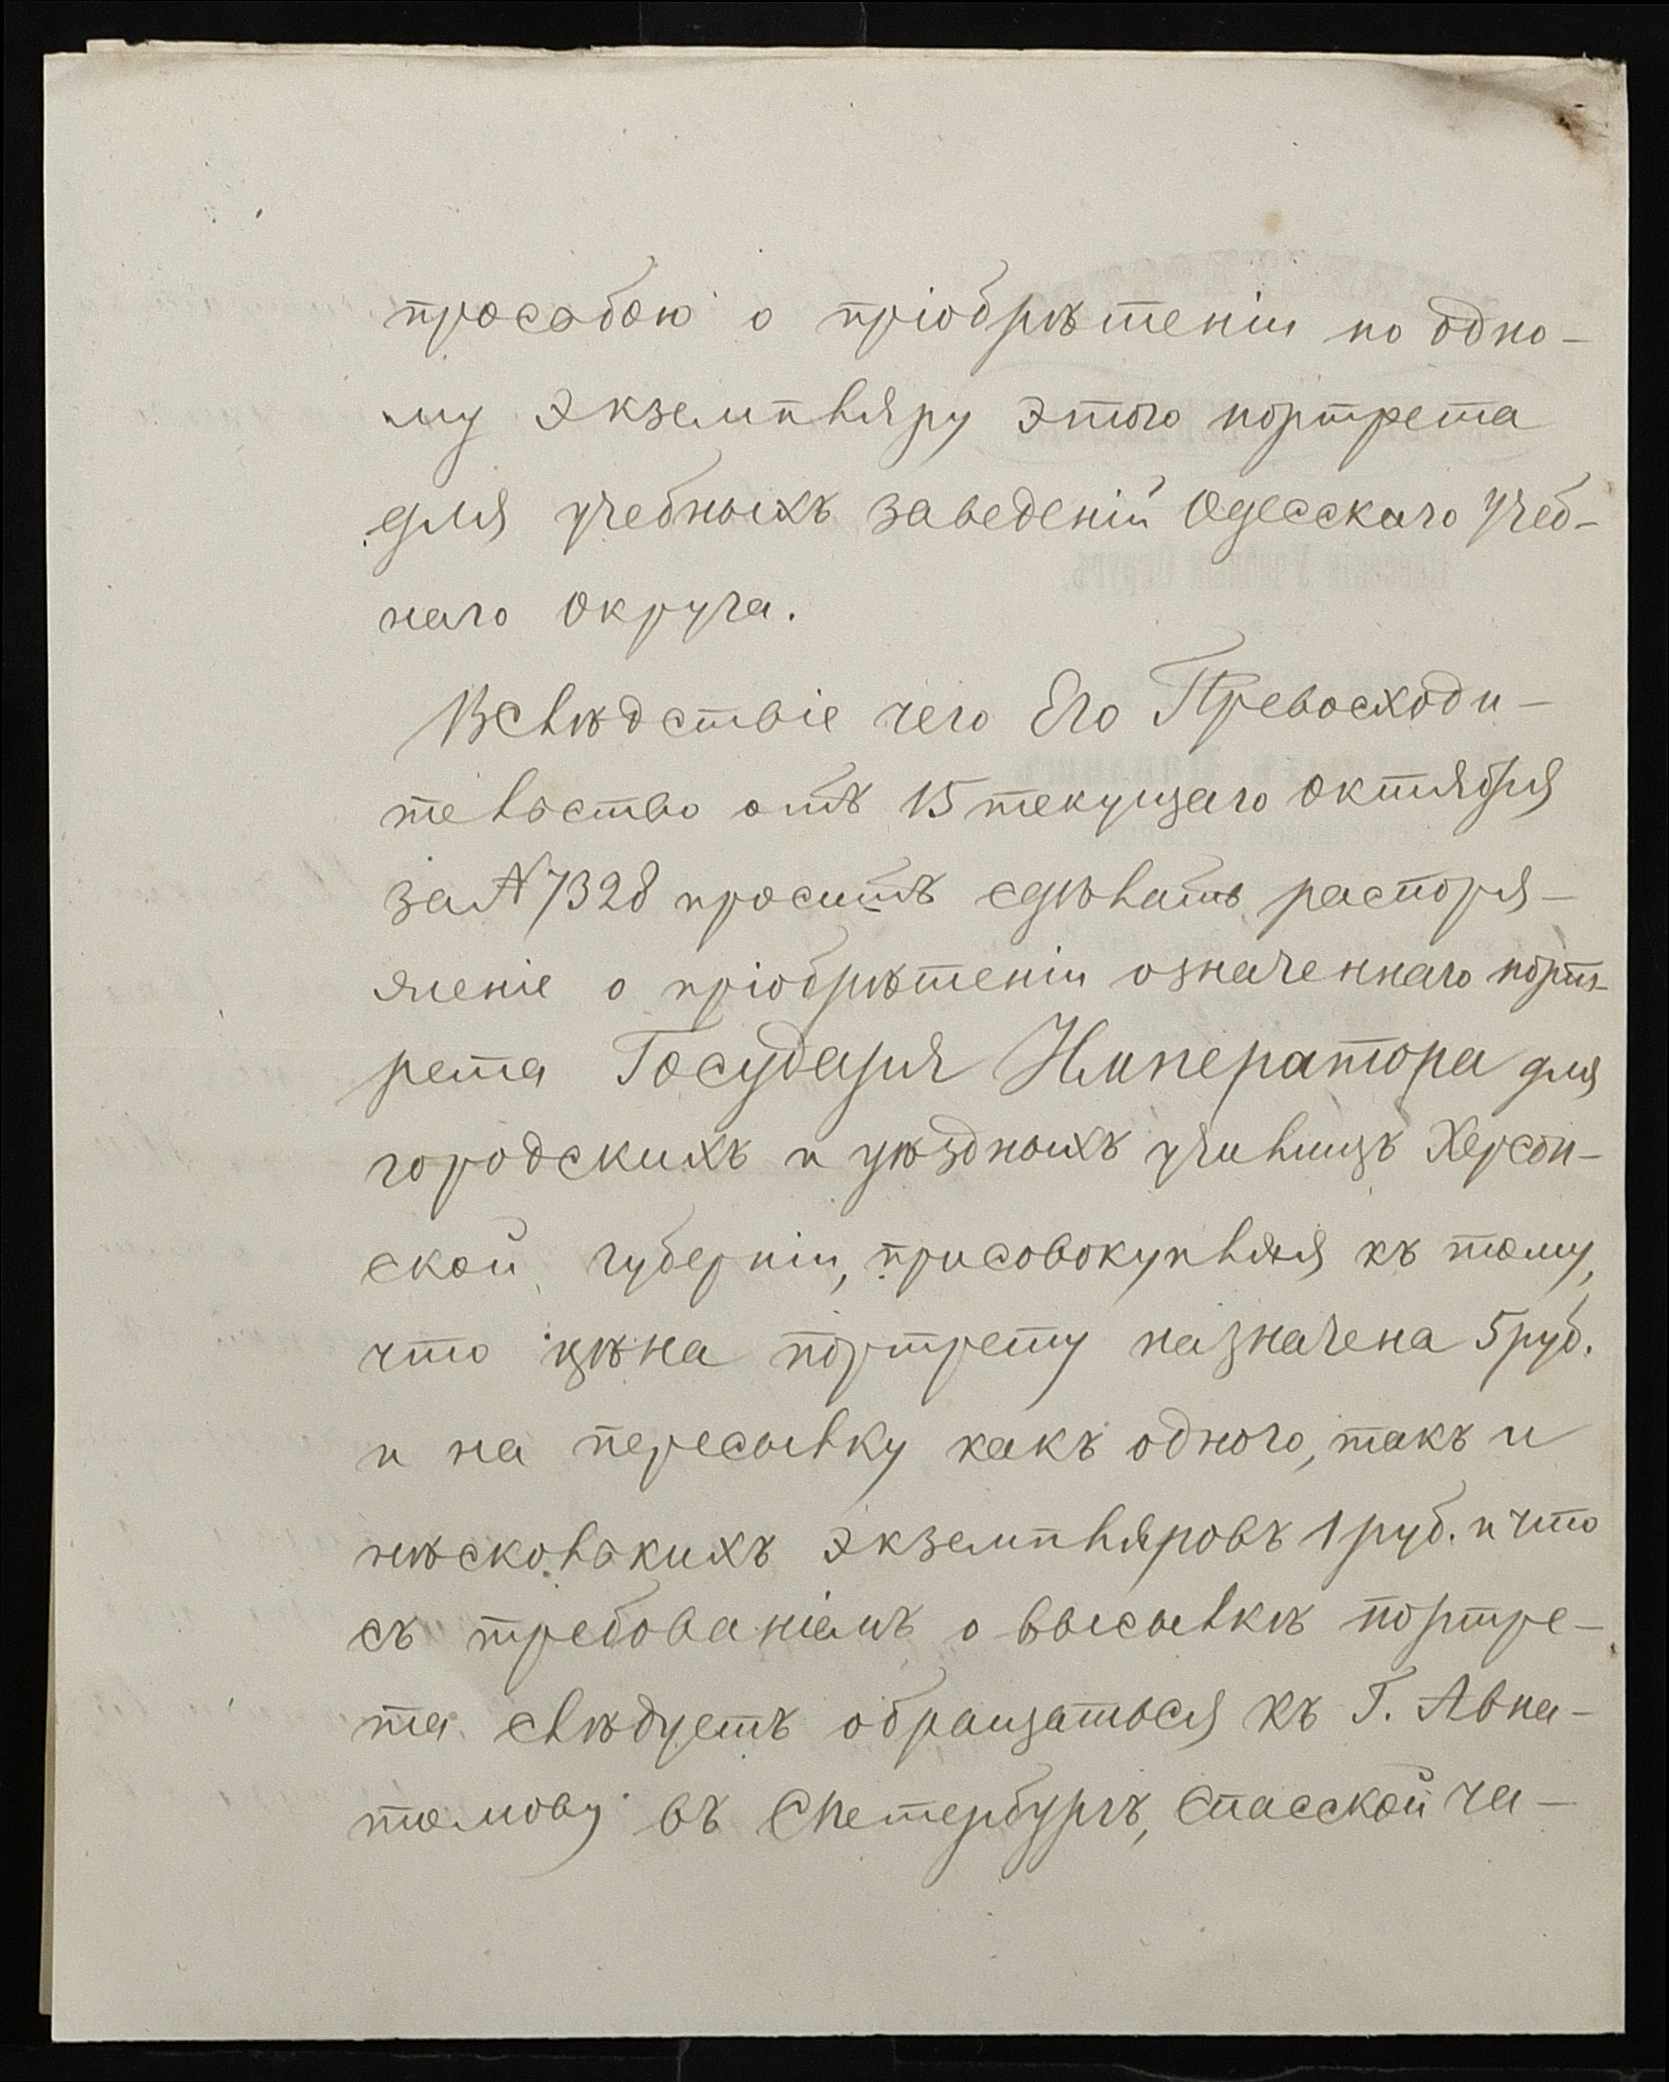 просьбою о пріобрѣтеніи по одно-
му экземпляру этого портрета
для учебныхъ заведеній Одесскаго Учеб-
наго Округа.
Вслѣдствіе чего Его Превосходи-
тельство отъ 15 текущаго Октября
за № 7328 проситъ сдѣлать распоря-
женіе о пріобрѣтеніи означеннаго порт-
рета Государя Императора для
городскихъ и уѣздныхъ училищъ Херсон-
ской губерніи, присовокупляя къ тому,
что цѣна портрету назначена 5 руб.
и на пересылку какъ одного, такъ и
нѣсколькихъ экземпляровъ 1 руб. и что
съ требованіемъ о высылкѣ портре-
та слѣдуетъ обращаться къ Г. Авна-
томову въ СПетербургъ, Спасской ча-